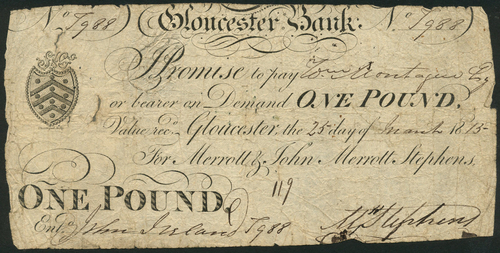 No T988 Gloucester Bank. No T988
I Promise to pay Tom Montague Esq
or bearer on Demand ONE POUND.
Value recd. Gloucester, the 25 day of March 1815
For Merrott & John Merrott Stephens,
119
ONE POUND
Entd. John Ireland T988 Mtt Stephens